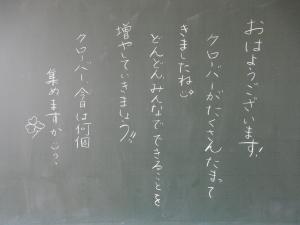 おはようございます!
クローバーがたくさんたまって
きましたね
どんどんみんなでできることを
増やしていきましょう!!
クローバー、今日は何個
集めますか?